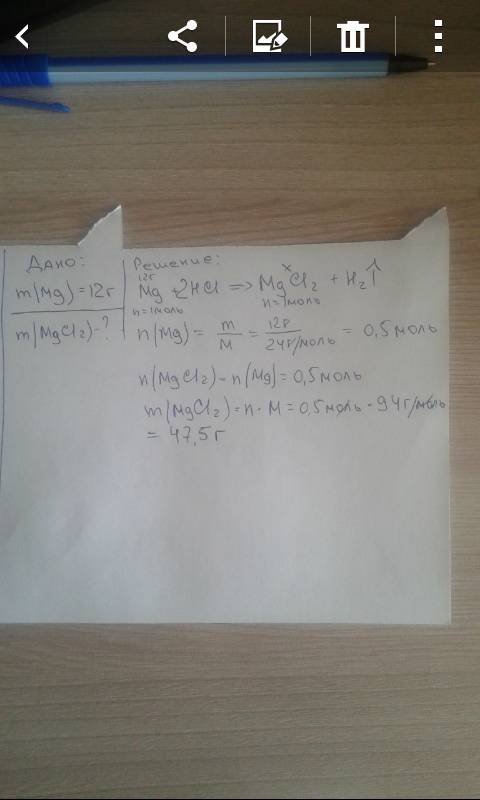 Дано:
m(Mg) = 12г
m(MgCl2) - ?
Решение:
12г x
Mg + 2HCl => MgCl2 + H2↑
n=1моль n=1моль
n(Mg) = m/M = 12г/24г/моль = 0,5 моль
n(MgCl2) = n(Mg) = 0,5моль
m(MgCl2) = n · M = 0,5моль · 94г/моль
= 47,5г